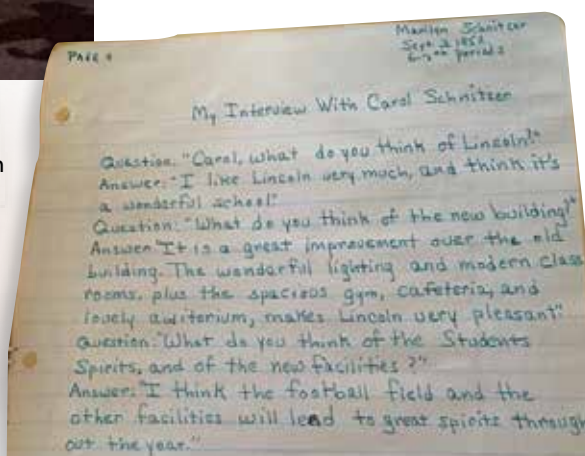 PAGE 4
Marilyn Schnitzer
Sept. 2 1952
period 2
My Interview With Carol Schnitzer
Question: "Carol, what do you think of Lincoln?"
Answer: "I like Lincoln very much, and think it's
a wonderful school"
Question: "What do you think of the new building?"
Answer "It is a great improvement over the old
building. The wonderful lighting and modern class
rooms, plus the spacious gym, cafeteria, and
lovely auditorium, makes Lincoln very pleasant"
Question: "What do you think of the Students
Spirits, and of the new facilities?"
Answer: "I think the football field and the
other facilities will lead to great spirits through
out the year."